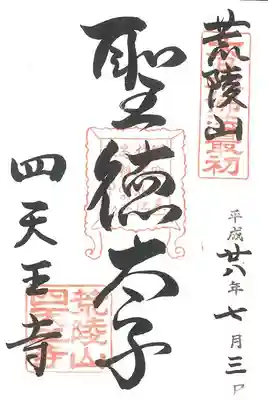 荒陵山
聖徳太子
四天王寺
平成廿八年七月三日
荒陵山
四天王寺